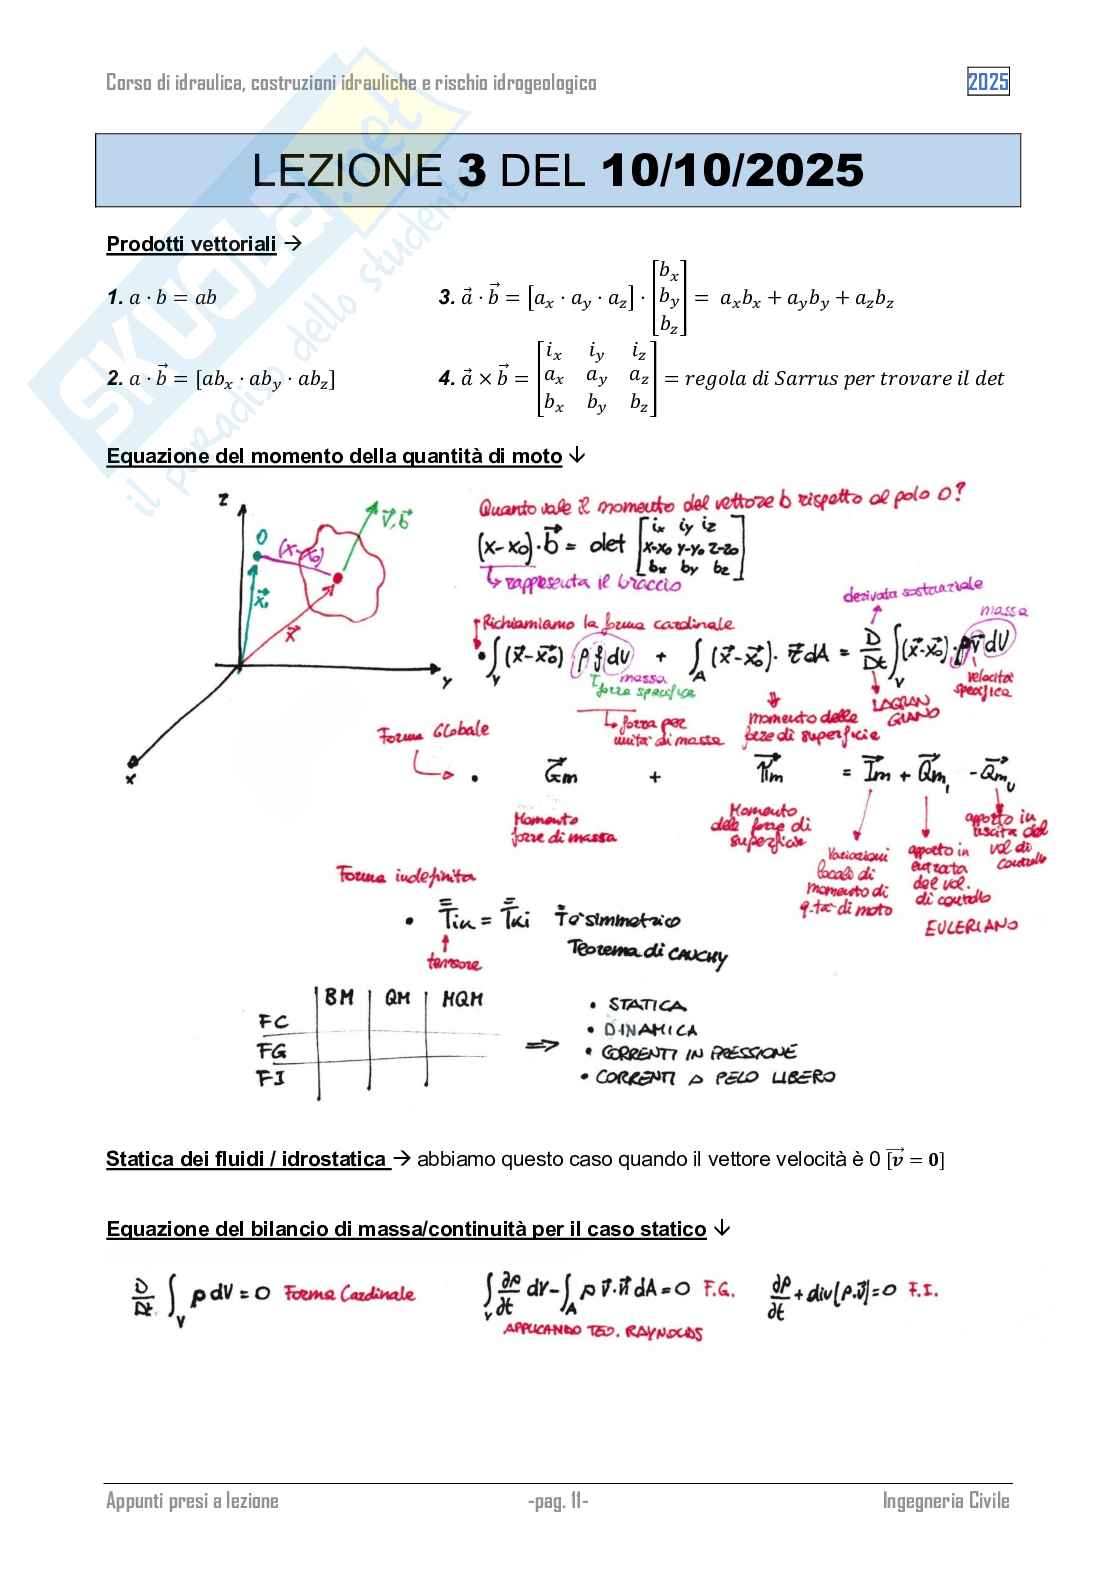 Corso di idraulica, costruzioni idrauliche e rischio idrogeologico 2025
LEZIONE 3 DEL 10/10/2025
SKUOLA.net
il paradiso dello studente
Prodotti vettoriali →
1. a · b = ab
3. a⃗ · b⃗ = [aₓ · a_y · a_z] · [bₓ b_y b_z] = aₓbₓ + a_yb_y + a_zb_z
2. a · b⃗ = [abₓ · ab_y · ab_z]
4. a⃗ × b⃗ = [iₓ i_y i_z aₓ a_y a_z bₓ b_y b_z] = regola di Sarrus per trovare il det
Equazione del momento della quantità di moto ↓
z
O
(x-x₀)
v⃗, b⃗
x⃗₀
x⃗
y
x
Quanto vale il momento del vettore b rispetto al polo O?
(x-x₀)·b⃗ = det [ix iy iz x-x₀ y-y₀ z-z₀ bx by bz]
↳ rappresenta il braccio
derivata sostanziale
massa
Richiamiamo la forma cardinale
• ∫_V (x⃗-x⃗₀) ρ f dV + ∫_A (x⃗-x⃗₀)· τ⃗ dA = D/Dt ∫_V (x⃗-x⃗₀)·ρv⃗ dV
massa
forza specifica
velocità specifica
↳ forza per unità di massa
momento delle forze di superficie
LAGRANGIANO
Forma Globale
• G⃗m + π⃗m = I⃗m + Q⃗m₁ - Q⃗m_U
Momento forze di massa
Momento delle forze di superficie
Variazioni locali di momento di q.tà di moto
apporto in entrata del vol. di controllo
apporto in uscita del vol di controllo
EULERIANO
Forma indefinita
• T̿ik = T̿ki T̿ è simmetrico
Teorema di CAUCHY
tensore
BM QM MQM
FC
FG
FI
⇒
• STATICA
• DINAMICA
• CORRENTI IN PRESSIONE
• CORRENTI A PELO LIBERO
Statica dei fluidi / idrostatica → abbiamo questo caso quando il vettore velocità è 0 [v⃗ = 0]
Equazione del bilancio di massa/continuità per il caso statico ↓
D/Dt ∫_V ρ dV = 0 Forma Cardinale
∫_V ∂ρ/∂t dV - ∫_A ρ v⃗·n⃗ dA = 0 F.G.
∂ρ/∂t + div(ρ·v⃗) = 0 F.I.
APPLICANDO TEO. RAYNOLDS
Appunti presi a lezione -pag. 11- Ingegneria Civile